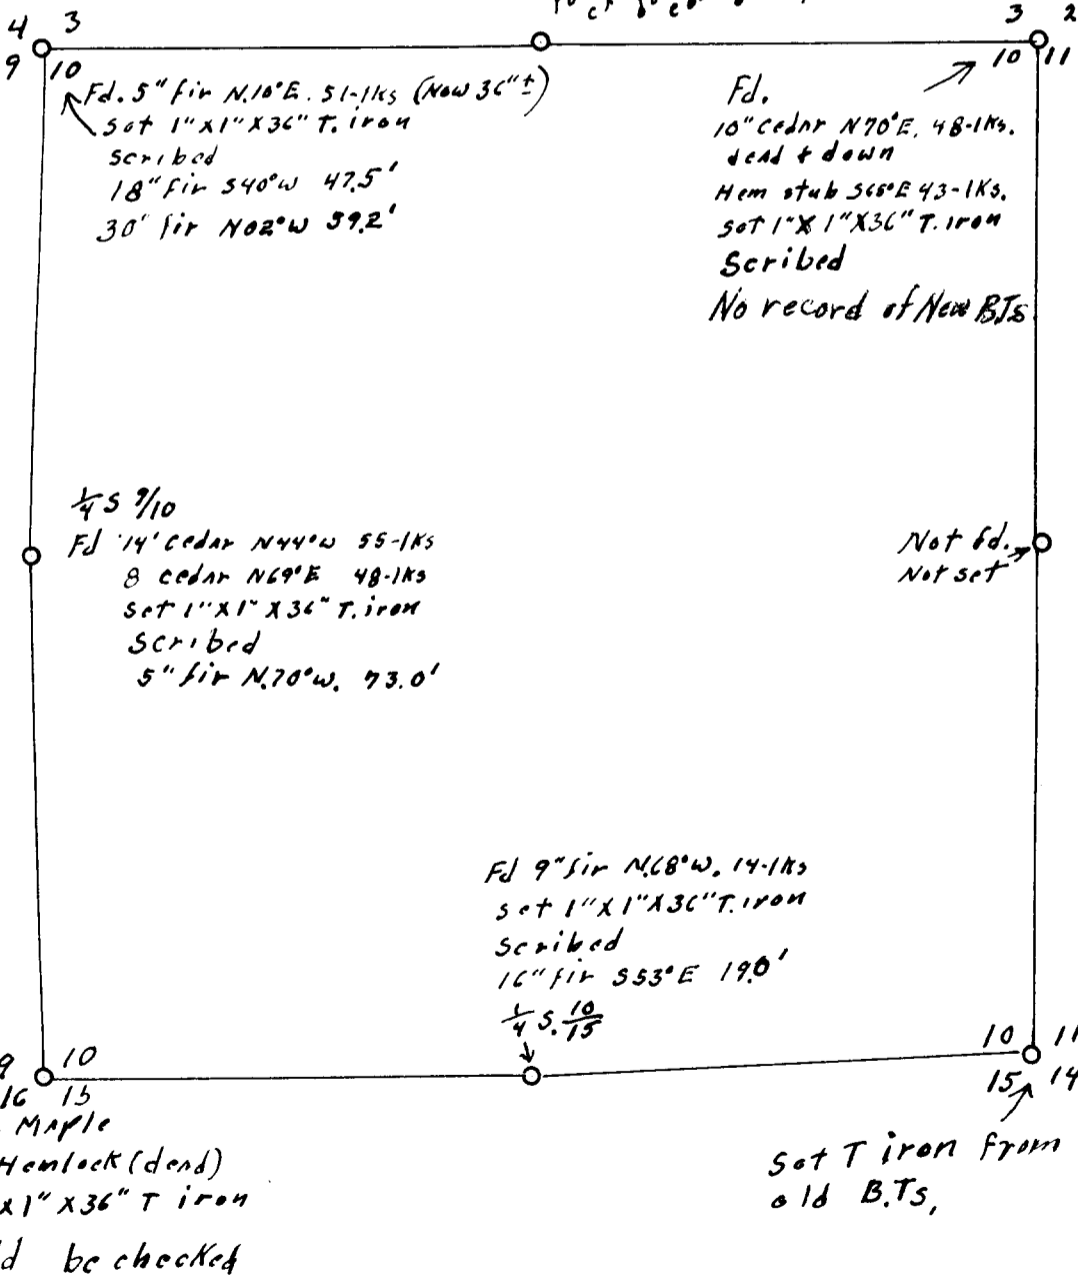 4 3
9 10
3 2
10 11
Fd. 5" fir N.10°E. 51-lks (Now 36"±)
Set 1" X 1" X 36" T. iron
scribed
18" fir S40°W 47.5'
30' fir N02°W 59.2'
Fd.
10" cedar N70°E, 48-lks.
dead & down
Hem stub S65°E 43-lks.
set 1" X 1" X 36" T. iron
Scribed
No record of New B.Ts
1/4 S 9/10
Fd 14' cedar N44°W 55-lks
8 cedar N69°E 48-lks
set 1" X 1" X 36" T. iron
Scribed
5" fir N.70°W. 73.0'
Not fd.
Not set
Fd 9" fir N.68°W. 14-lks
set 1" X 1" X 36" T. iron
Scribed
16" fir S53°E 19.0'
1/4 S. 10/15
9 10
16 15
10 11
15 14
Maple
Hemlock (dead)
x 1" X 36" T iron
be checked
Set T iron from
old B.Ts,